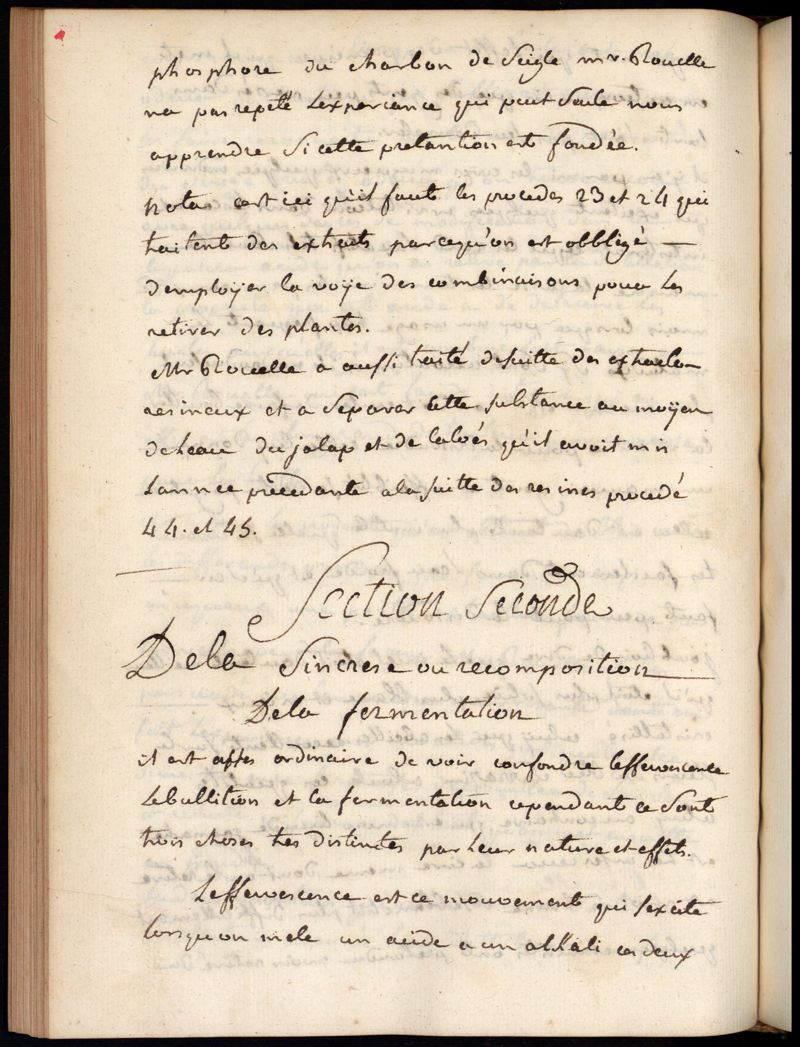 phosphore du charbon de seigle mr. Rouelle
na pas repeté L'experiance qui peut seule nous
apprendre si cette pretantion est fondée.
nota cest ici qu'il faut les procedes 23 et 24 qui
traitent des extraits parcequ'on est obbligé —
demployer la voÿe des combinaisons pour Les
retirer des plantes.
Mr Rouelle a aussi traité desuitte des extracto-
resineux et a separer cette substance au moÿen
de Leau du jalap et de laloés qu'il avoit mis
Lannee précedante a la suitte des resines procedé
44. et 45.
Section Seconde
De la Sincrese ou recomposition
De la fermentation
il est asses ordinaire de voir confondre Leffervescence
Lebullition et la fermentation cependant ce sont
trois choses tres distinctes par Leur nature et effets.
Leffervescence est ce mouvement qui sexcite
Lorsqu on mele un acide a un alkali ces deux